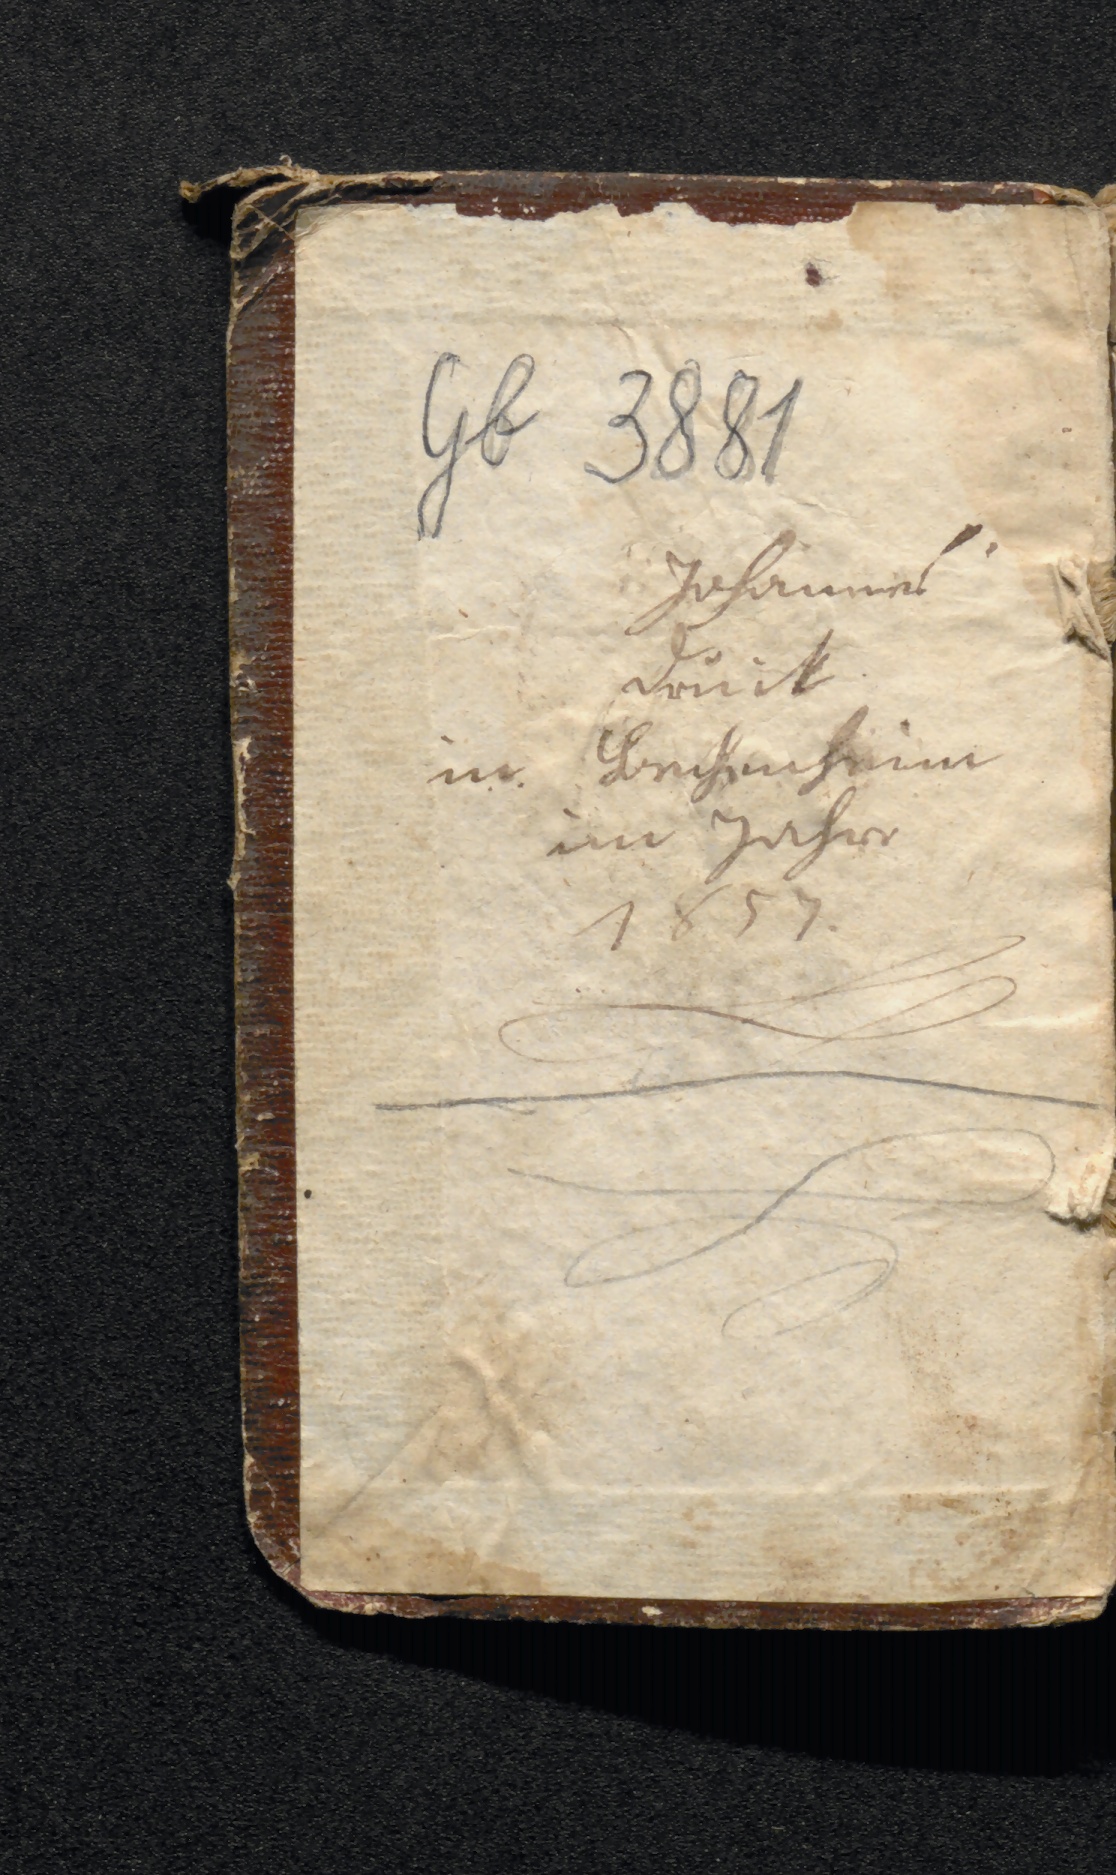 Gb 3881
Johannes
Druck
in Bechenheim
im Jahre
1857.